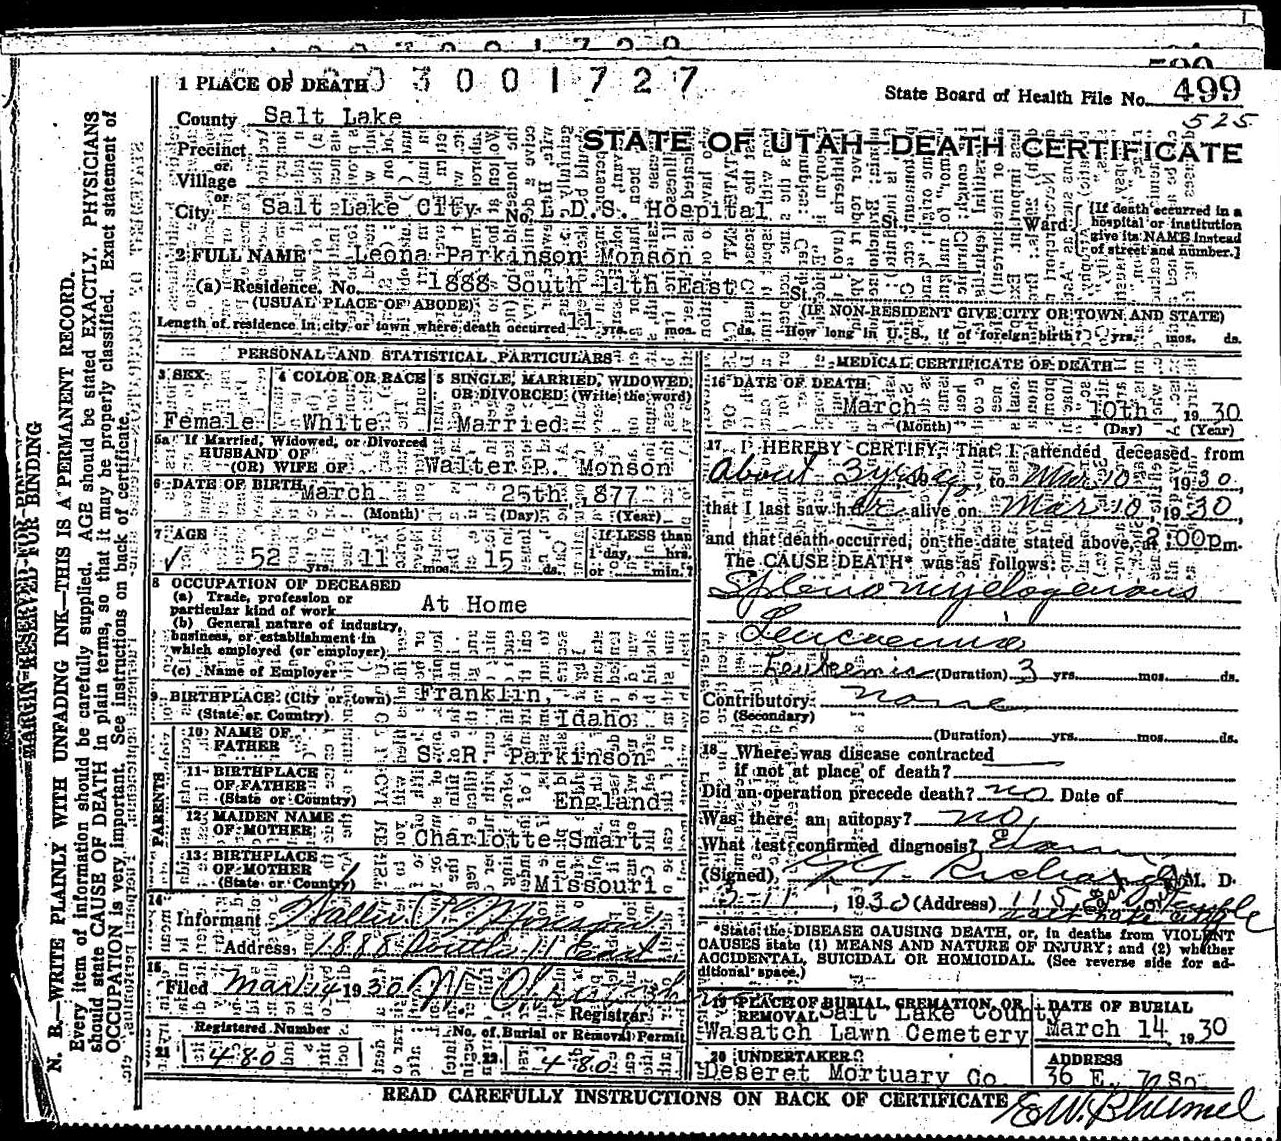 1 PLACE OF DEATH
3001727
State Board of Health File No. 499
525
County Salt Lake
STATE OF UTAH—DEATH CERTIFICATE
Precinct
or
Village
or
City Salt Lake City No. L.D.S. Hospital St. Ward
[If death occurred in a hospital or institution give its NAME instead of street and number.]
2 FULL NAME Leona Parkinson Monson
(a) Residence. No. 1888 South 11th East St.
(USUAL PLACE OF ABODE) (IF NON-RESIDENT GIVE CITY OR TOWN AND STATE)
Length of residence in city or town where death occurred 11 yrs. mos. ds. How long in U. S., if of foreign birth? yrs. mos. ds.
PERSONAL AND STATISTICAL PARTICULARS
3 SEX
Female
4 COLOR OR RACE
White
5 SINGLE, MARRIED, WIDOWED, OR DIVORCED (Write the word)
Married
5a If Married, Widowed, or Divorced
HUSBAND OF
(OR) WIFE OF Walter P. Monson
6 DATE OF BIRTH March 25th 877
(Month) (Day) (Year)
7 AGE
52 yrs. 11 mos. 15 ds.
If LESS than
1 day, hrs.
or min.?
8 OCCUPATION OF DECEASED
(a) Trade, profession or
particular kind of work At Home
(b) General nature of industry,
business, or establishment in
which employed (or employer)
(c) Name of Employer
9 BIRTHPLACE (City or town) Franklin,
(State or Country) Idaho
PARENTS
10 NAME OF
FATHER S. R Parkinson
11 BIRTHPLACE
OF FATHER
(State or Country) England
12 MAIDEN NAME
OF MOTHER Charlotte Smart
13 BIRTHPLACE
OF MOTHER
(State or Country) Missouri
14
Informant Walter P. Monson
Address 1888 South 11 East
15
Filed Mar 14 1930
Registrar
Registered Number
21 480
No. of Burial or Removal Permit
22 480
MEDICAL CERTIFICATE OF DEATH
16 DATE OF DEATH
March 10th 1930
(Month) (Day) (Year)
17 I HEREBY CERTIFY, That I attended deceased from
About 3 yrs ago, to Mar 10 1930,
that I last saw her alive on Mar 10, 1930,
and that death occurred, on the date stated above, at 2:00 p.m.
The CAUSE DEATH* was as follows:
Splenomyelogenous
Leucaemia
Leukemia (Duration) 3 yrs. mos. ds.
Contributory none
(Secondary)
(Duration) yrs. mos. ds.
18 Where was disease contracted
if not at place of death?
Did an operation precede death? no Date of
Was there an autopsy? no
What test confirmed diagnosis? Exam
(Signed) Richards M. D.
3 11, 1930 (Address) 115 E So Temple
Salt Lake
*State the DISEASE CAUSING DEATH, or, in deaths from VIOLENT
CAUSES state (1) MEANS AND NATURE OF INJURY; and (2) whether
ACCIDENTAL, SUICIDAL OR HOMICIDAL. (See reverse side for ad-
ditional space.)
19 PLACE OF BURIAL, CREMATION, OR
REMOVAL Salt Lake County
Wasatch Lawn Cemetery
DATE OF BURIAL
March 14 1930
20 UNDERTAKER
Deseret Mortuary Co.
ADDRESS
36 E. 7 So.
READ CAREFULLY INSTRUCTIONS ON BACK OF CERTIFICATE
MARGIN RESERVED FOR BINDING
N. B.—WRITE PLAINLY WITH UNFADING INK—THIS IS A PERMANENT RECORD.
Every item of information should be carefully supplied. AGE should be stated EXACTLY. PHYSICIANS
should state CAUSE OF DEATH in plain terms, so that it may be properly classified. Exact statement of
OCCUPATION is very important. See instructions on back of certificate.